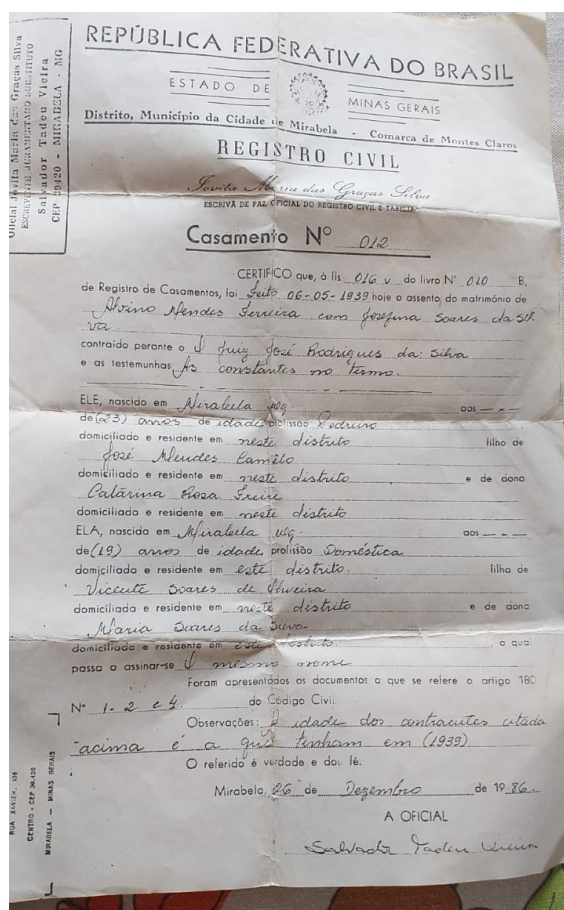 Oficial Jovita Maria das Graças Silva
ESCREVENTE JURAMENTADO SUBSTITUTO
Salvador Tadeu Vieira
CEP 39420 - MIRABELA - MG
REPÚBLICA FEDERATIVA DO BRASIL
ESTADO DE MINAS GERAIS
Distrito, Município da Cidade de Mirabela - Comarca de Montes Claros
REGISTRO CIVIL
Jovita Maria das Graças Silva
ESCRIVÃ DE PAZ, OFICIAL DO REGISTRO CIVIL E TABELIÃ
Casamento Nº 012
CERTIFICO que, à fls 016 v do livro Nº 010 B,
de Registro de Casamentos, foi feito 06-05-1939 hoje o assento do matrimônio de
Alvino Mendes Ferreira com Josefina Soares da Sil
va.
contraído perante o O Juiz José Rodrigues da Silva
e as testemunhas As constantes no termo.
ELE, nascido em Mirabela mg aos - " -
de (23) anos de idade profissão Pedreiro
domiciliado e residente em neste distrito filho de
José Mendes Camilo
domiciliado e residente em neste distrito e de dona
Catarina Rosa Freire
domiciliada e residente em neste distrito
ELA, nascida em Mirabela mg. aos - " -
de (19) anos de idade profissão Doméstica
domiciliada e residente em este distrito. filha de
Vicente Soares de Oliveira
domiciliado e residente em neste distrito e de dona
Maria Soares da Silva
domiciliada e residente em este distrito. a qual
passa a assinar-se O mesmo nome
Foram apresentados os documentos a que se refere o artigo 180
Nº 1-2 e 4. do Código Civil.
Observações: A idade dos contraentes citada
acima é a que tinham em (1939)
O referido é verdade e dou fé.
Mirabela, 26 de Dezembro de 1986.
A OFICIAL
Salvador Tadeu Vieira
RUA XAVIER, 138
CENTRO - CEP 39.420
MIRABELA - MINAS GERAIS